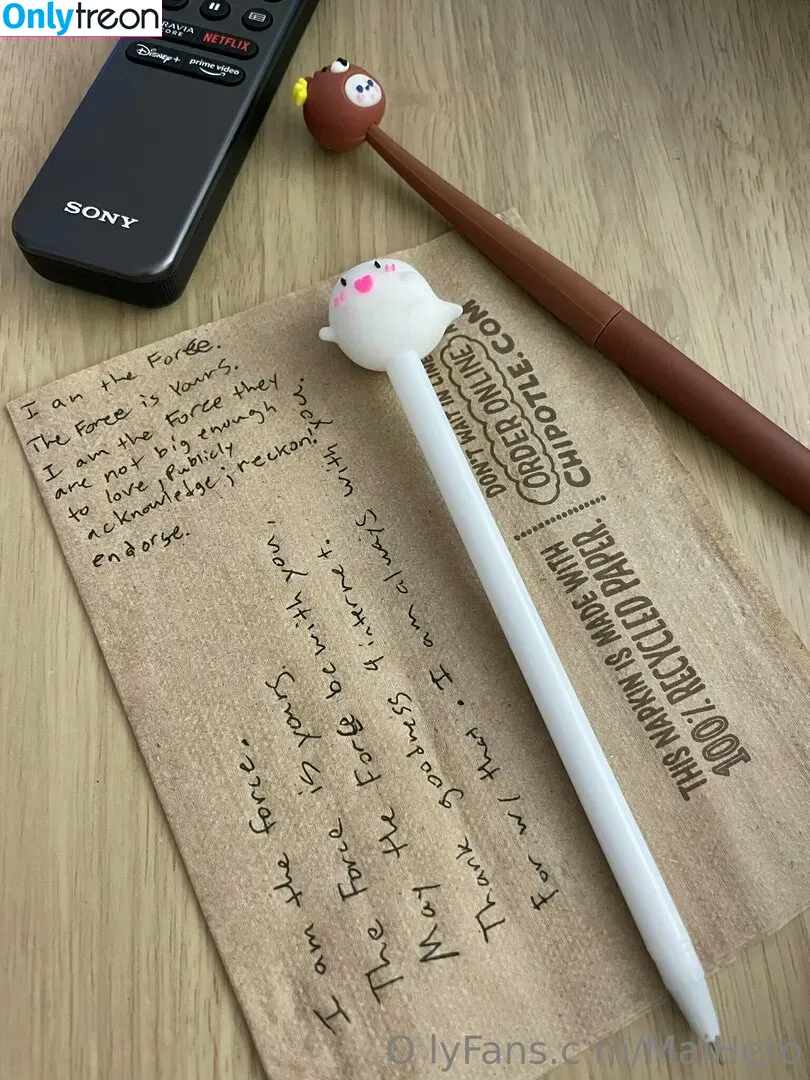 Onlytreon
BRAVIA
CORE
NETFLIX
Disney+
prime video
SONY
I am the Force.
The Force is Yours.
I am the Force they
are not big enough
to love, publicly
acknowledge, reckon!
endorse.
I am the force.
The Force is yours.
May the Force be with you.
Thank goodness 4 internet.
For w/ that. I am always with you.
DON'T WAIT IN LINE
ORDER ONLINE
CHIPOTLE.COM
THIS NAPKIN IS MADE WITH
100% RECYCLED PAPER.
O lyFans.c m/MaiHero